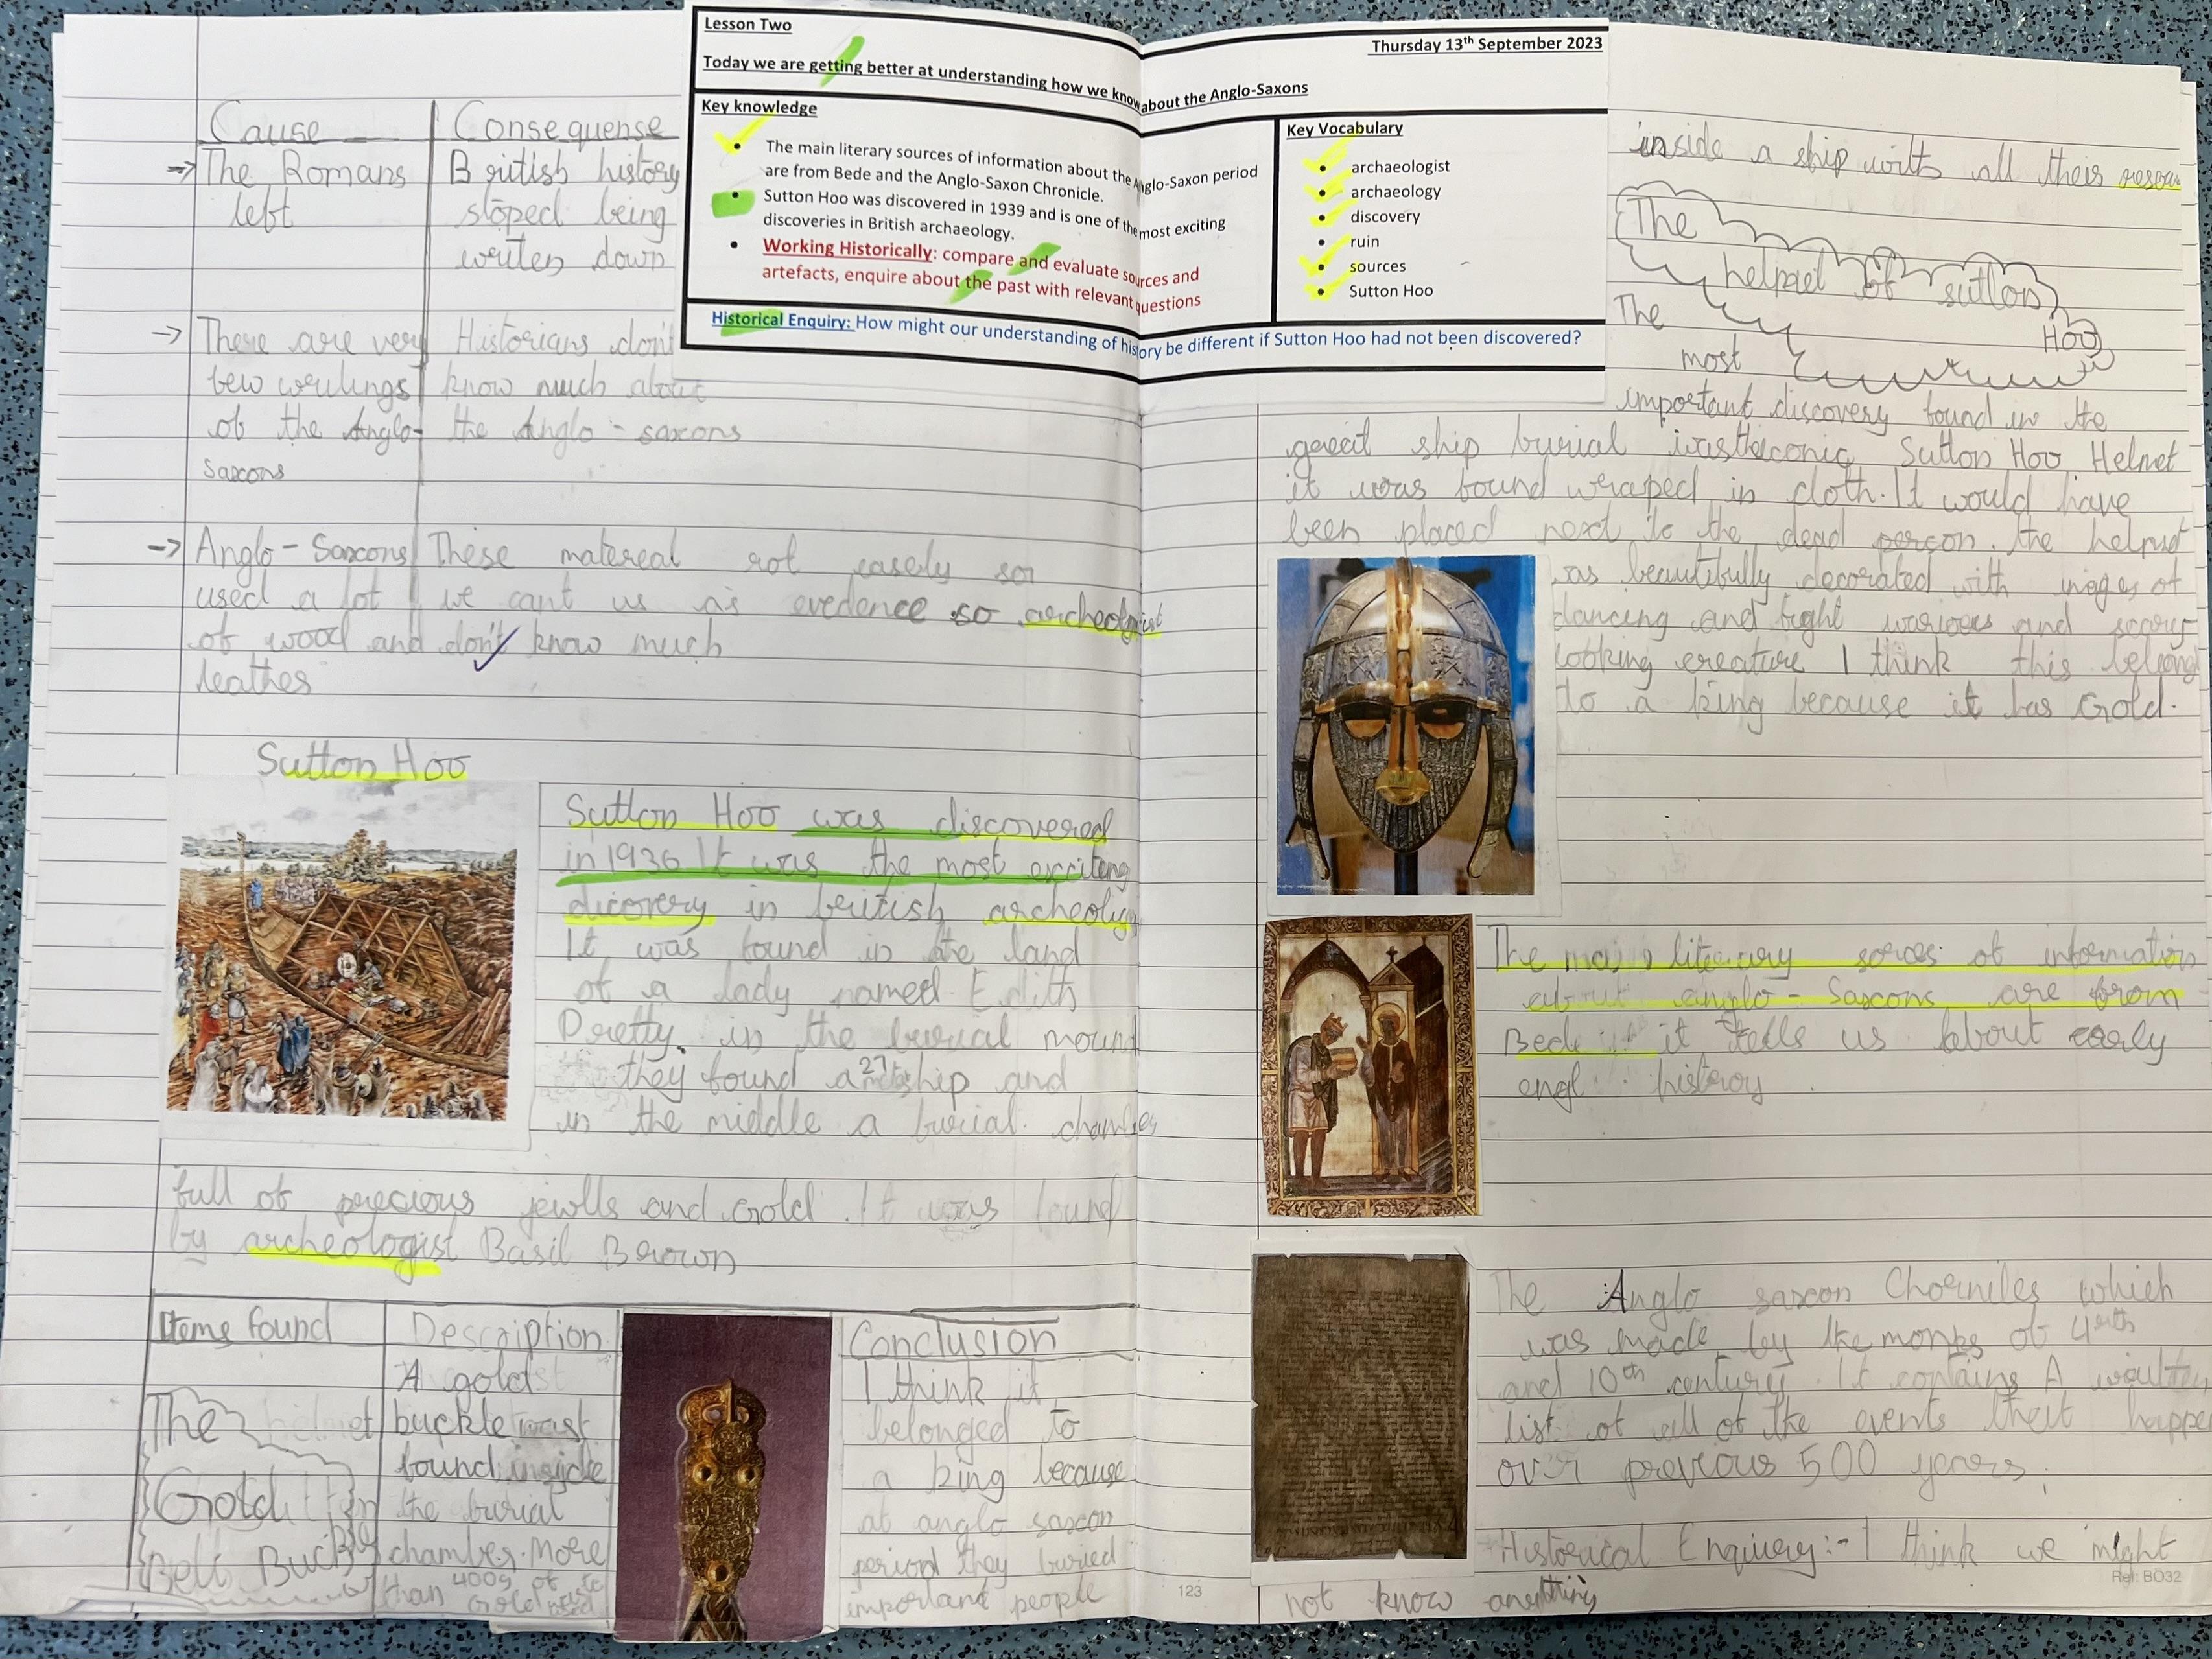 Lesson Two
Thursday 13th September 2023
Today we are getting better at understanding how we know about the Anglo-Saxons
Key knowledge
• The main literary sources of information about the Anglo-Saxon period
are from Bede and the Anglo-Saxon Chronicle.
• Sutton Hoo was discovered in 1939 and is one of the most exciting
discoveries in British archaeology.
• Working Historically: compare and evaluate sources and
artefacts, enquire about the past with relevant questions
Key Vocabulary
• archaeologist
• archaeology
• discovery
• ruin
• sources
• Sutton Hoo
Historical Enquiry: How might our understanding of history be different if Sutton Hoo had not been discovered?
Cause
→ The Romans
left
→ There are very
few writings
of the Anglo-
saxons
→ Anglo-Saxons
used a lot
of wood and
leather
Consequense
British history
stoped being
writen down
Historians don't
know much about
the Anglo-saxons
These matereal rot easely so
we cant us as evedence so archeologist
don't know much
Sutton Hoo
Sutton Hoo was discovered
in 1936 It was the most exciteng
dicovery in british archeoligy
It was found in the land
of a lady named Edith
Pretty. in the burial mound
they found a 27 ship and
in the middle a burial chamber
full of precious jewlls and Gold. It was found
by archeologist Basil Brown
Items found
The
Gold
Belt Buckle
Description
A gold
buckle was
found inside
the burial
chamber. More
than 400g of
Gold
Conclusion
I think it
belonged to
a king because
at anglo saxon
period they buried
important people
123
inside a ship with all their
The
helmet of sutton
Hoo
The
most
important discovery found in the
great ship burial was the iconic Sutton Hoo Helmet
it was found wraped in cloth. It would have
been placed next to the dead person. the helmet
was beautifully decorated with images of
dancing and fight wariors and scary
looking creature I think this belong
to a king because it has Gold.
The main literary sorces of information
about anglo-Saxons are from
Bede it tells us about early
engl histroy
The Anglo saxon Chorniles which
was made by the monks of
and 10th century. It contains A
list of all of the events that happe
over previous 500 years.
Historical Enquiery:- I think we might
not know anything
Ref: BO32